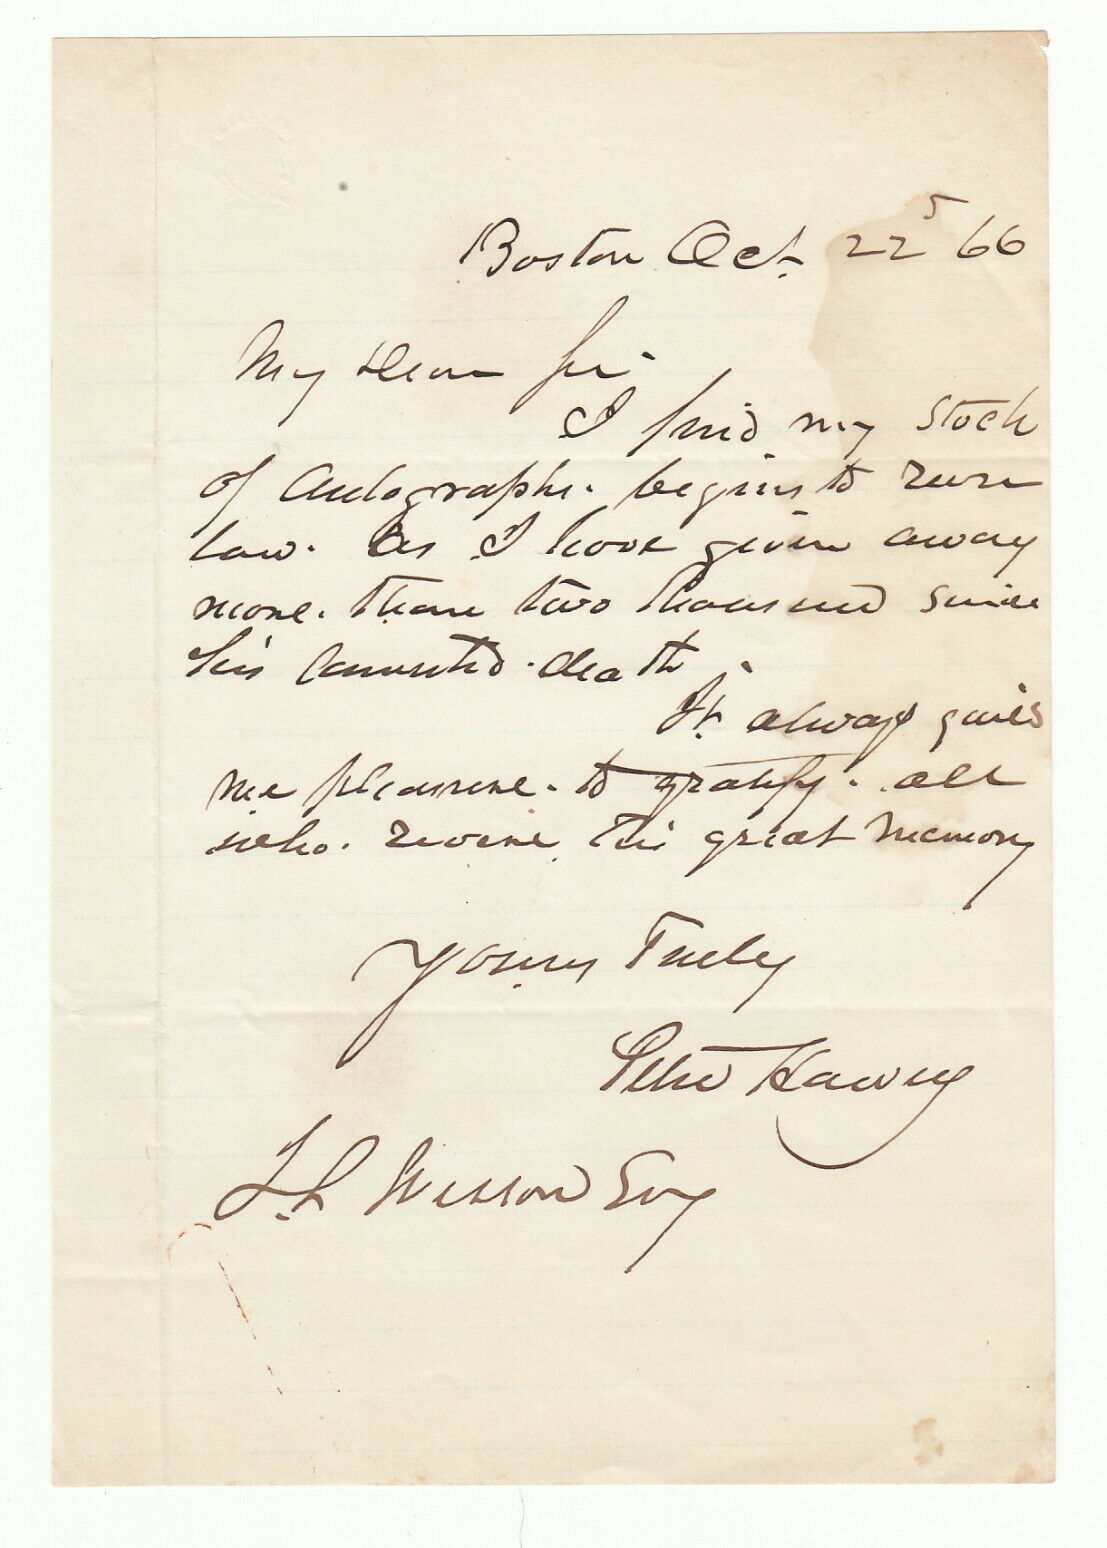 Boston Oct. 22 66
My Dear Sir
I find my Stock
of Autographs. begins to run
low. As I have given away
more. than two thousand since
his lamented. death.
It. always gives
me pleasure. to gratify. all
who. revere his great memory
Yours Truly
Peter Harvey
Wesson Esq